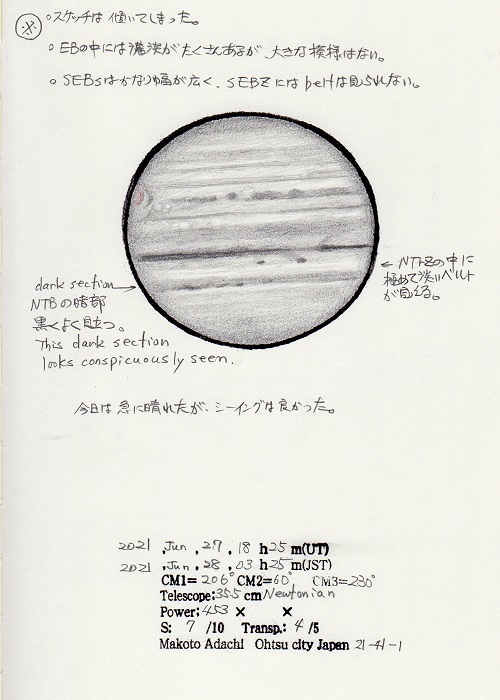 ※ ○スケッチは傾いてしまった。
○ EBの中には濃淡がたくさんあるが、大きな模様はない。
○ SEBsはかなり幅が広く、SEBZにはbeltは見られない。
← NTrZの中に
極めて淡いベルト
が見える。
dark section→
NTBの暗部
黒くよく目立つ。
This dark section
looks conspicuously seen.
今日は急に晴れたが、シーイングは良かった。
2021 ,Jun , 27 , 18 h 25 m(UT)
2021 ,Jun , 28 , 03 h 25 m(JST)
CM1= 206° CM2= 60° CM3= 230°
Telescope; 355 cm Newtonian
Power; 453 × ×
S: 7 /10 Transp.: 4 /5
Makoto Adachi Ohtsu city Japan 21-41-1